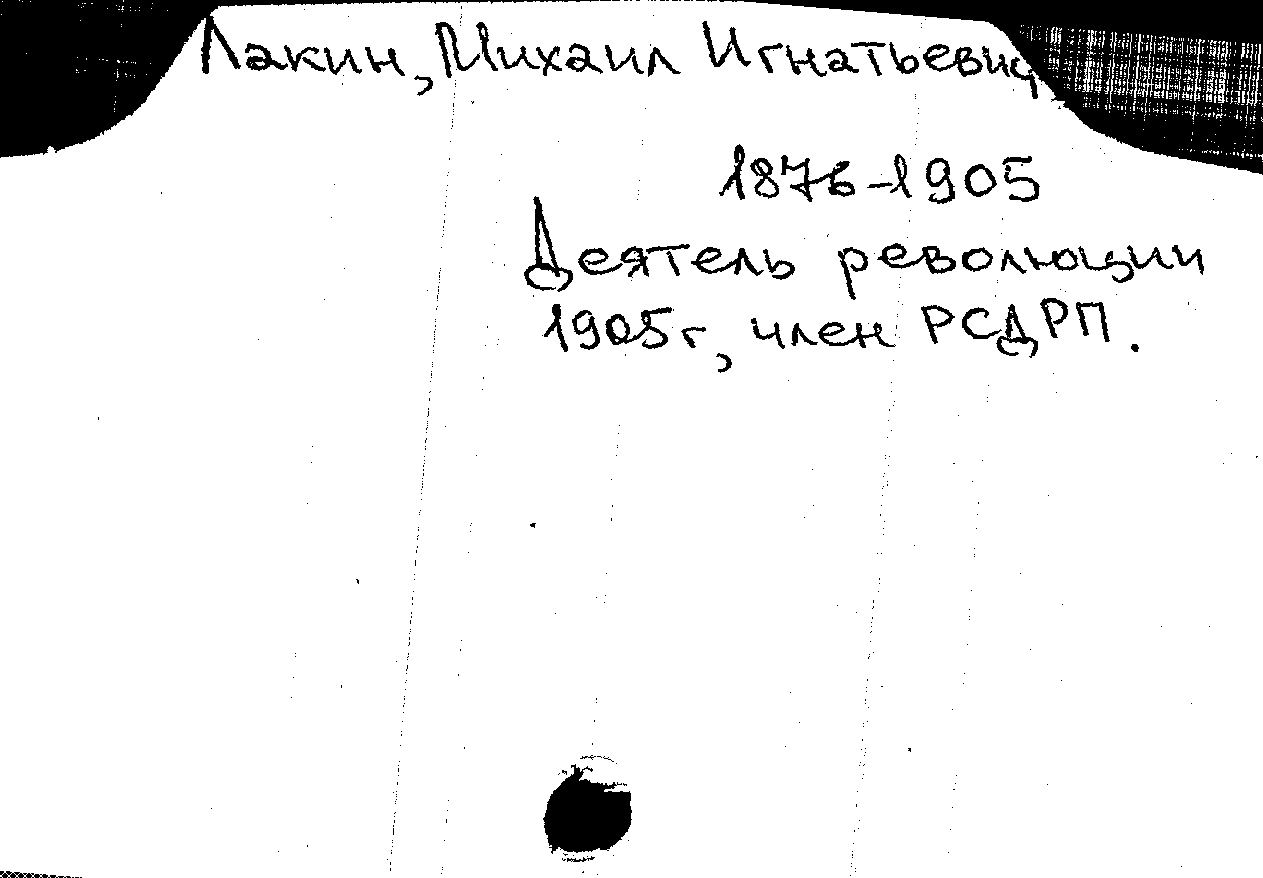 Лакин, Михаил Игнатьевич
1876-1905
Деятель революции
1905г, член РСДРП.